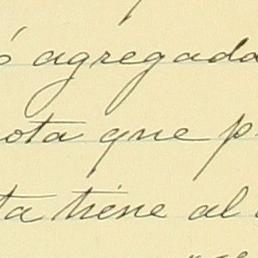 ó agregada
ota que p
ta tiene al